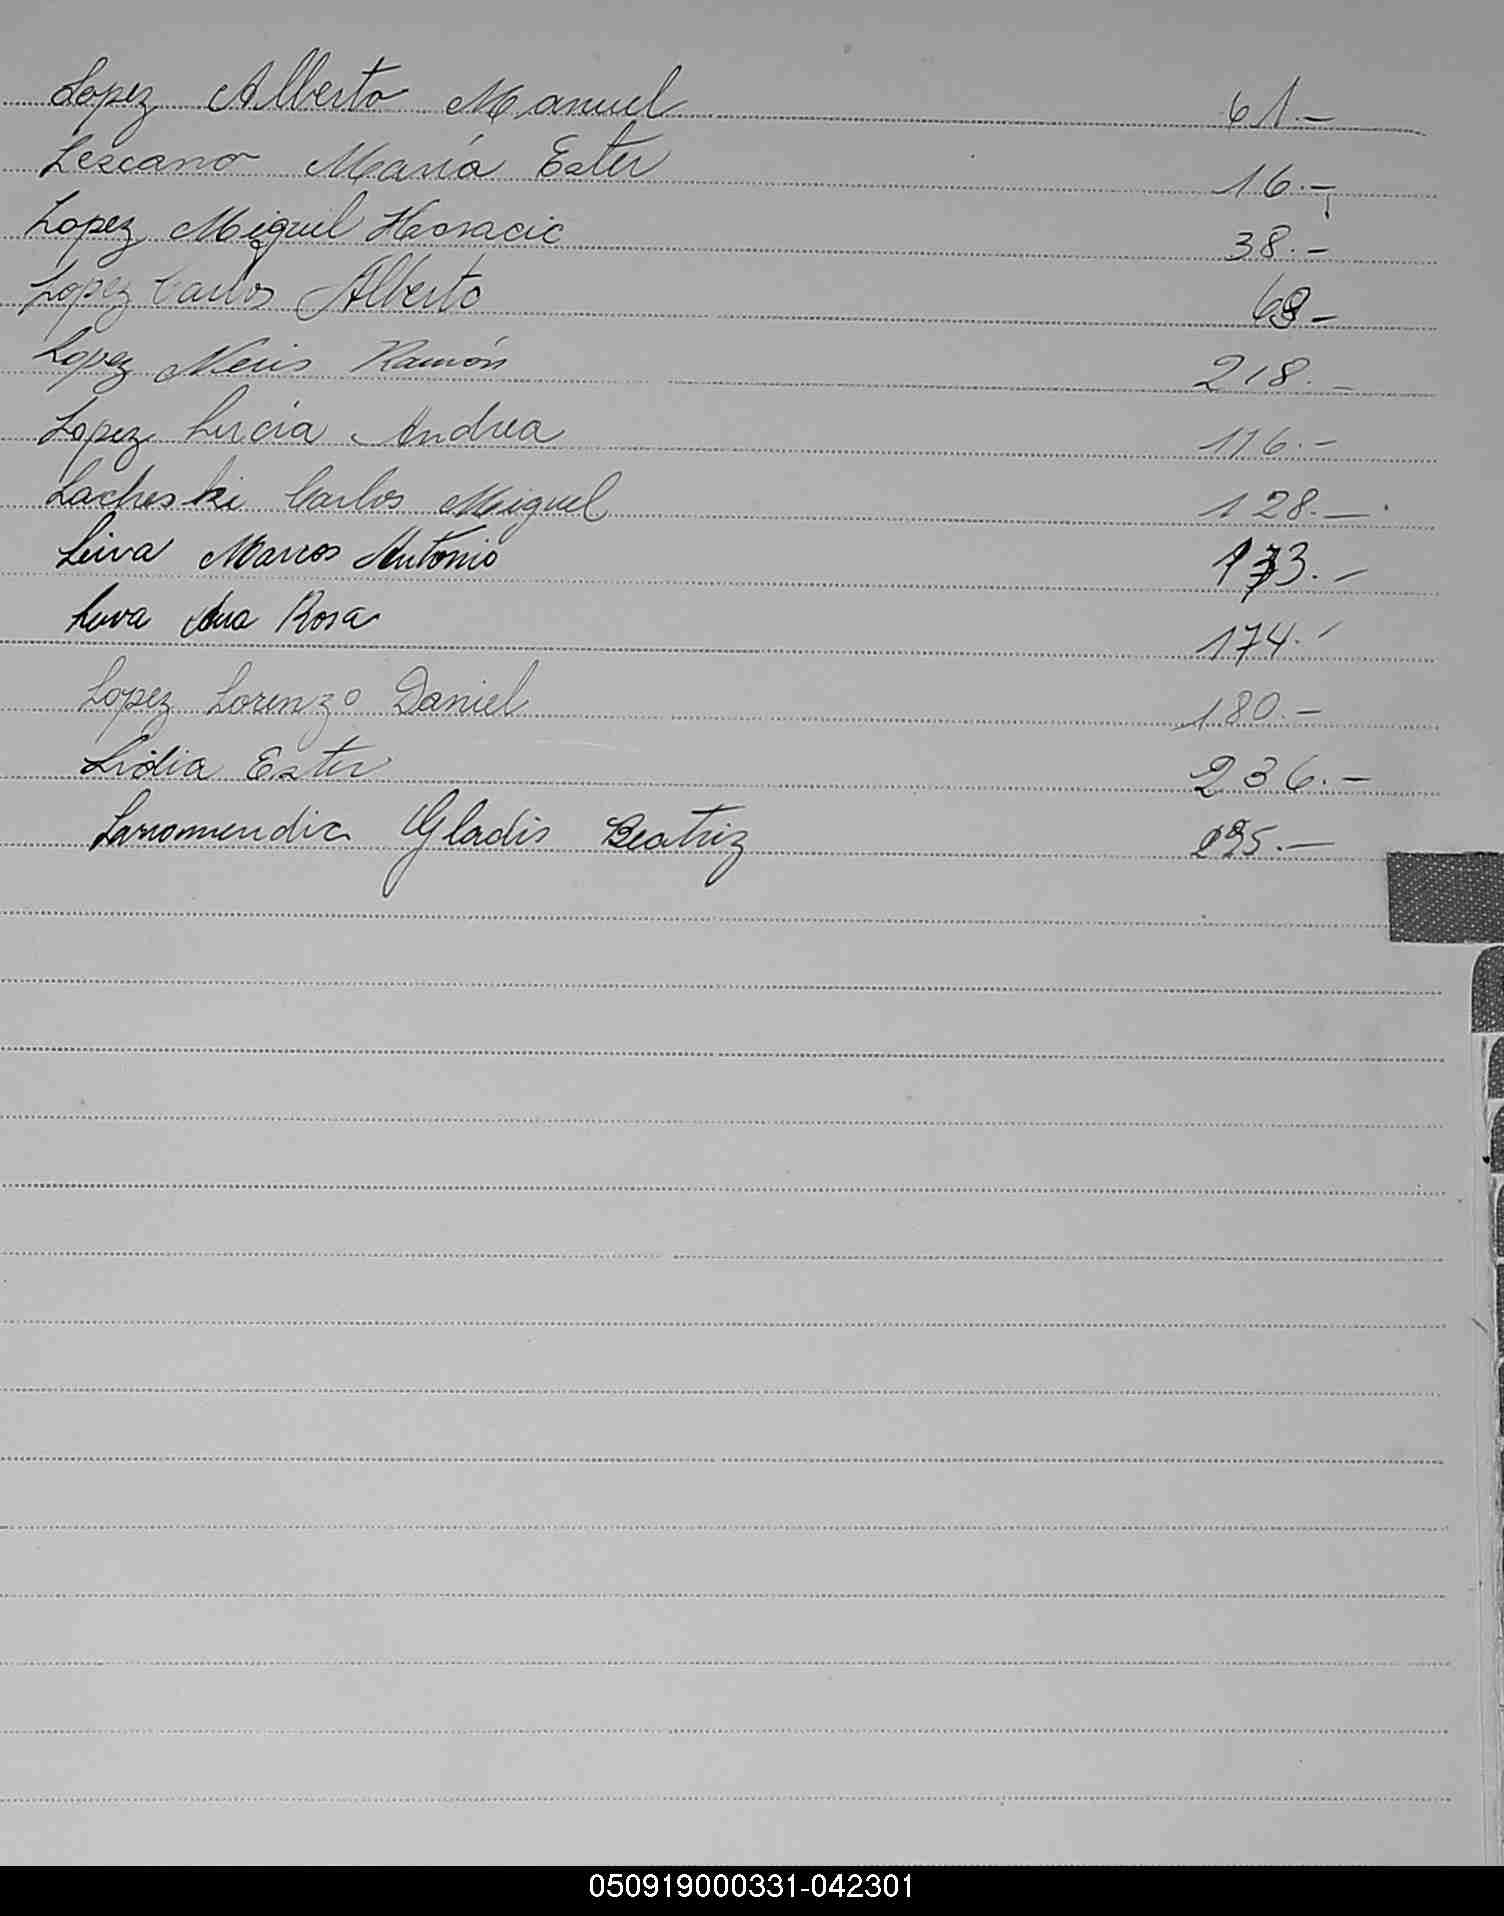 Lopez Alberto Manuel 61.-
Lezcano María Ester 16.-
Lopez Miguel Horacio 38.-
Lopez Carlos Alberto 68-
Lopez Neris Ramón 218.-
Lopez Lucia Andrea 116.-
Lacheski Carlos Miguel 128.-
Leiva Marcos Antonio 173.-
Leiva Ana Rosa 174.-
Lopez Lorenzo Daniel 180.-
Lidia Ester 236.-
Gladis Beatriz
050919000331-042301